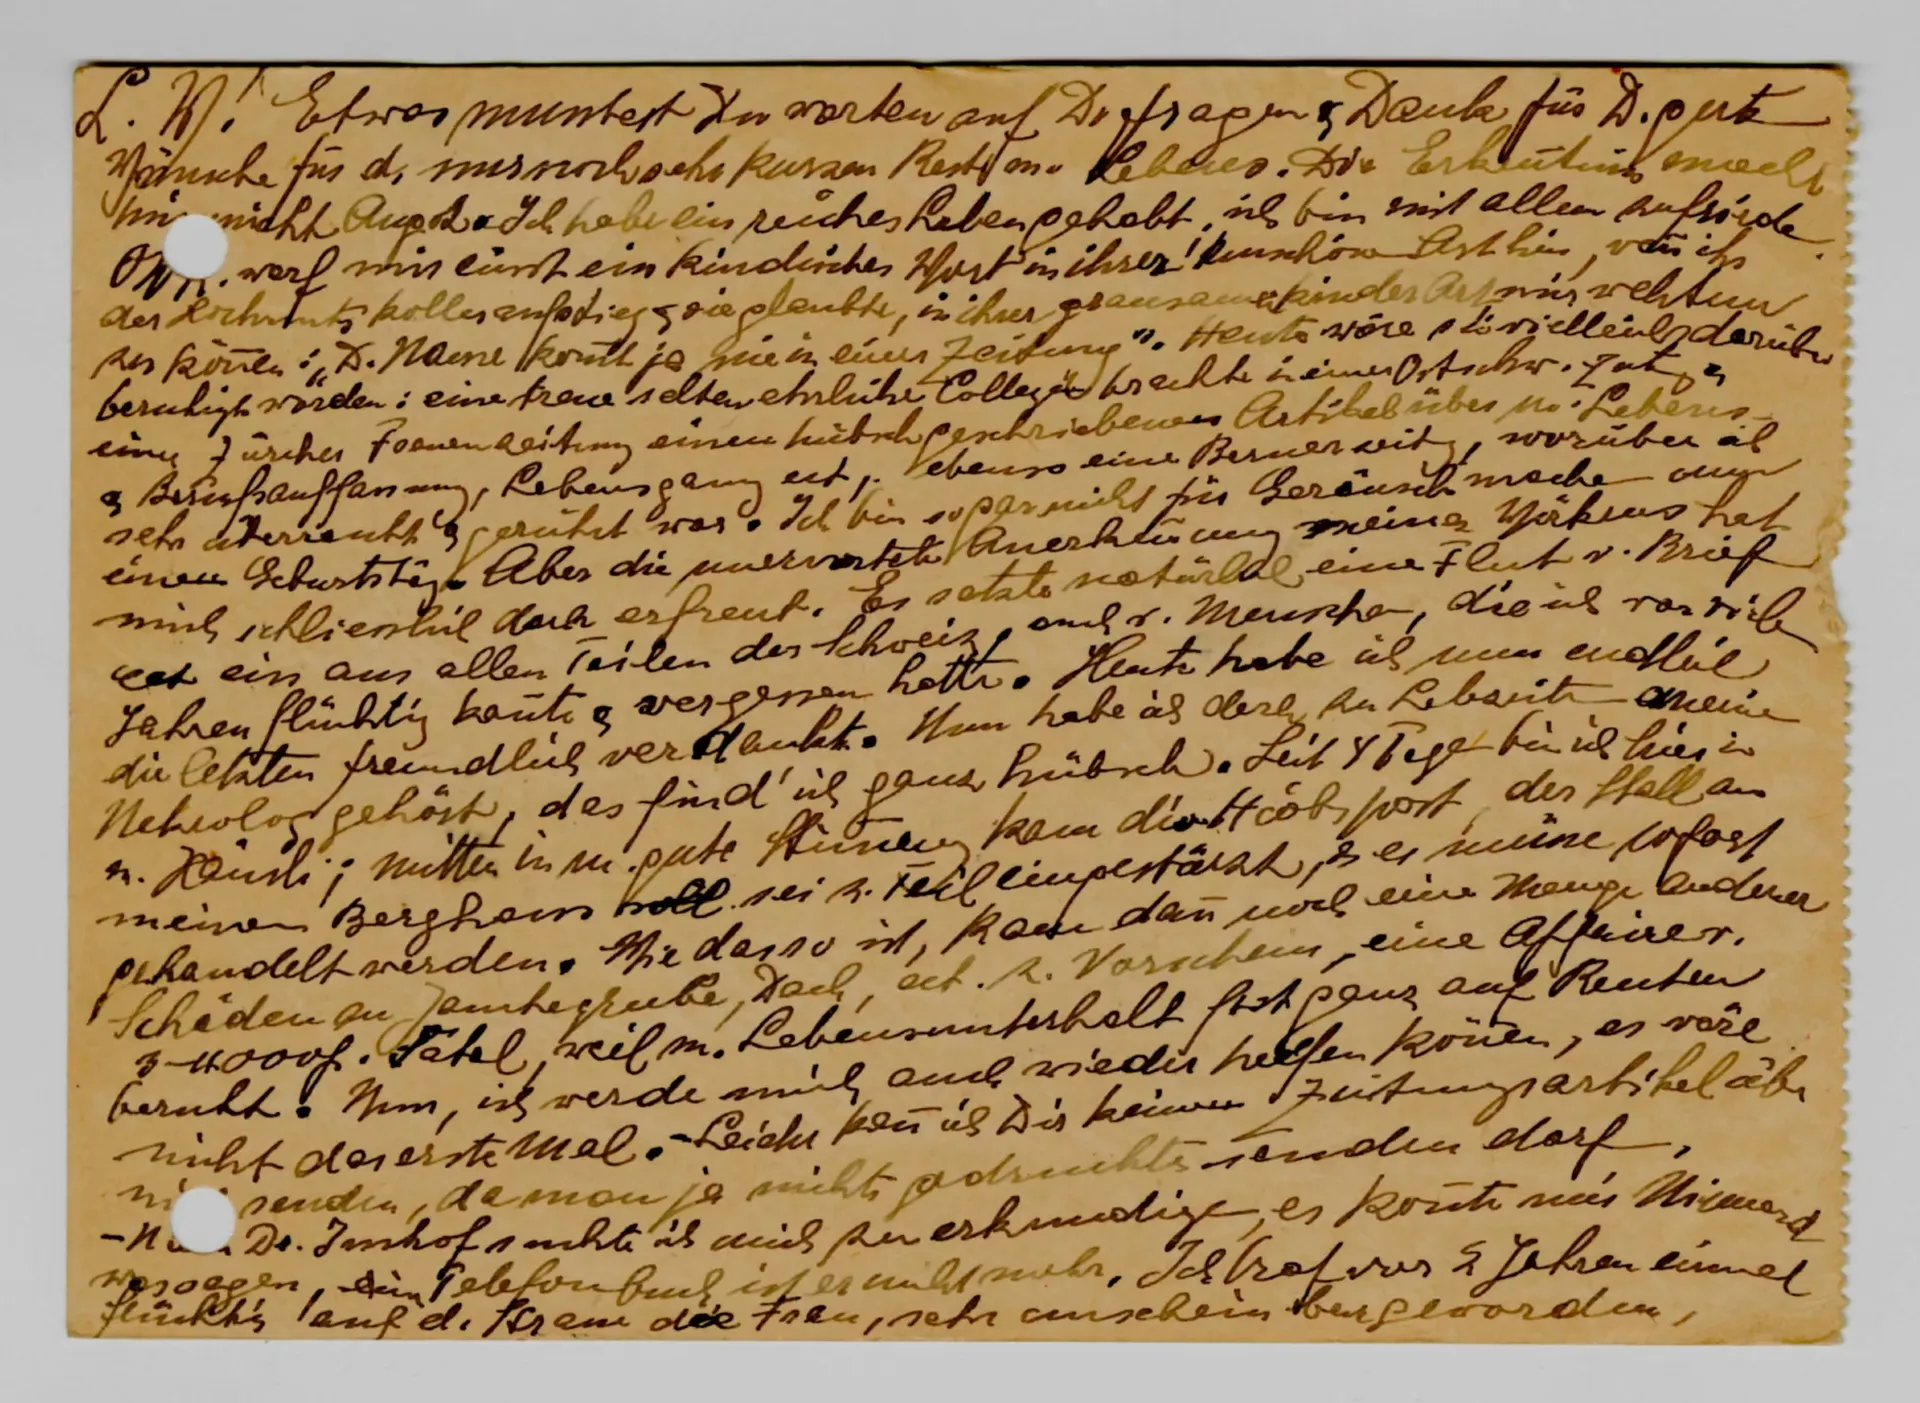 L. W.! Etwas muntest Du warten auf D. fragen & Dank für D. gute
Wünsche für d. nur noch sehr kurzen Rest m. Lebens. Die Erkentnis macht
mir nicht Angst. Ich habe ein reiches Leben gehabt, ich bin mit allem zufriede.
warf mir einst ein kindisches Wort in ihrer unschönen Art hin, wen ihr
der Hochmuts koller aufstieg & sie glaubte, in ihrer grausamen kinder Art mir wehtun
zu könen: „D. Name komt ja nie in einer Zeitung". Heute wäre sie vielleicht darüber
beruhigt worden: eine treue selten ehrliche Collegin brachte in einer Ostschw. Ztg &
einer Zürcher Frauenzeitung einen hübsch geschriebenen Artikel über m. Lebens-
& Berufsauffassung, Lebensgang ect, ebenso eine Berner zeitg, worüber ich
sehr überrascht & gerührt war. Ich bin so gar nicht für Geräusch mache um
einen Geburtstag. Aber die unerwartete Anerkenung meines Wirkens hat
mich schliesslich doch erfreut. Es setzte natürlich eine Flut v. Brief
ein aus allen Teilen der Schweiz, auch v. Menschen, die ich vor viele
Jahren flüchtig kante & vergessen hatte. Heute habe ich nun endlich
die letzten freundlich verdankt. Nun habe ich doch zu Lebzeite meine
Nekrolog gehört, das find' ich ganz hübsch. Seit 4 Tage bin ich hier in
m. Häusli; mitten in m. gute Stimung kam die Hiobspost, der Stall an
meinem Berghaus sei z. Teil eingestürzt, & es müsse sofort
gehandelt werden. Wie das so ist, kam dan noch eine Menge anderer
Schäden an Jauchegrube, Dach, ect. z. Vorschein, eine Affaire v.
3-4000 f. Fatal, weil m. Lebensunterhalt fast ganz auf Renten
beruht. Nun, ich werde mich auch wieder helfen könen, es wäre
nicht das erste Mal. - Leider kan ich Dir keinen Zeitungsartikel übe
senden, da man ja nichts gedrucktes senden darf.
- Dr. Imhof suchte ich mich zu erkundige, es konte mir Niemand
was sagen, im Telefonbuch ist er nicht mehr. Ich traf vor 2 Jahren einmal
flüchtig auf d. Strasse die Frau, sehr unscheinbar geworden,